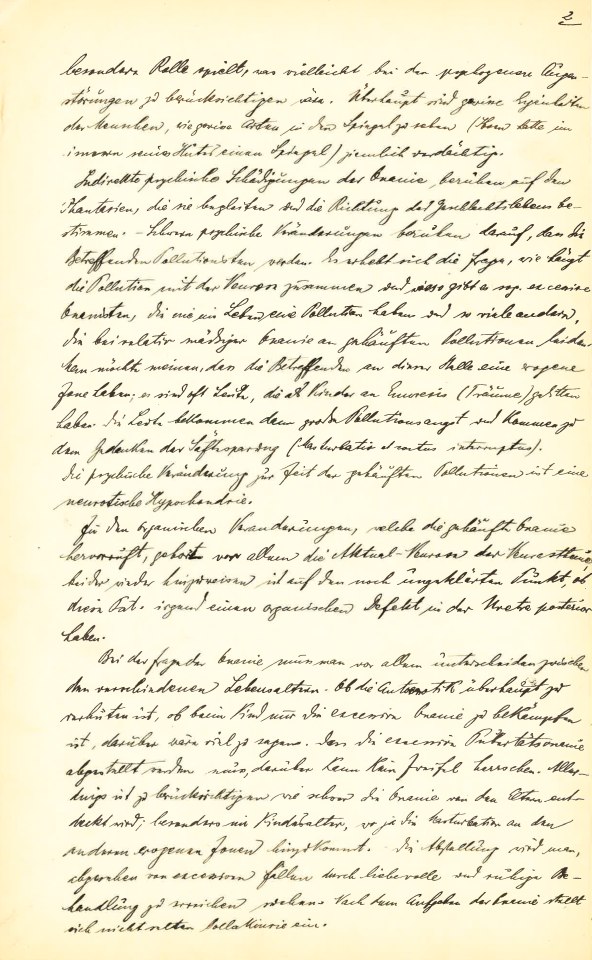 2
besondere Rolle spielt, was vielleicht bei den psychogenen Augen-
störungen zu berücksichtigen wäre. Überhaupt sind gewisse Eigenheiten
der Menschen, wie gewisse Arten in den Spiegel zu sehen (hatte im
inneren seines Hutes einen Spiegel) ziemlich verdächtig.
Indirekte psychische Schädigungen der Onanie beruhen auf den
Phantasien, die sie begleiten und die Richtung des Geschlechtslebens be-
stimmen. - Schwere psychische Veränderungen beruhen darauf, dass die
Betreffenden Pollutionisten werden. Es erhebt sich die Frage, wie hängt
die Pollution mit der Neurose zusammen und wieso gibt es sog. excessive
Onanisten, die nie im Leben eine Pollution haben und so viele andere,
die bei relativ mässiger Onanie an gehäuften Pollutionen leiden.
Man möchte meinen, dass die Betreffenden an dieser Stelle eine erogene
Zone haben; es sind oft Leute, die als Kinder an Enuresis (Träume) gelitten
haben. Die Leute bekommen dann grosse Pollutionsangst und kommen zu
dem Gedanken der Säftesparung (Masturbatio et coitus interruptus).
Die psychische Veränderung zur Zeit der gehäuften Pollutionen ist eine
neurotische Hypochondrie.
Zu den organischen Veränderungen, welche die gehäufte Onanie
hervorruft, gehört vor allem die Aktual-Neurose der Neurasthenie,
bei der wieder hinzuweisen ist auf den noch ungeklärten Punkt, ob
diese Pat. irgend einen organischen Defekt in der Uretra posterior
haben.
Bei der Frage der Onanie muss man vor allem unterscheiden zwischen
den verschiedenen Lebensaltern. Ob die Autoerotik überhaupt zu
verhüten ist, ob beim Kind nur die excessive Onanie zu bekämpfen
ist, darüber wäre viel zu sagen. Dass die excessive Pubertätsonanie
abgestellt werden muss, darüber kann kein Zweifel herrschen. Aller-
dings ist zu berücksichtigen wie schwer die Onanie von den Eltern ent-
deckt wird; besonders im Kindesalter, wo ja die Masturbation an den
anderen erogenen Zonen hinzukommt. Die Abstellung wird man,
abgesehen von excessiven Fällen durch liebevolle und ruhige Be-
handlung zu erreichen suchen. Nach dem Aufgeben der Onanie stellt
sich nicht selten Pollakiurie ein.